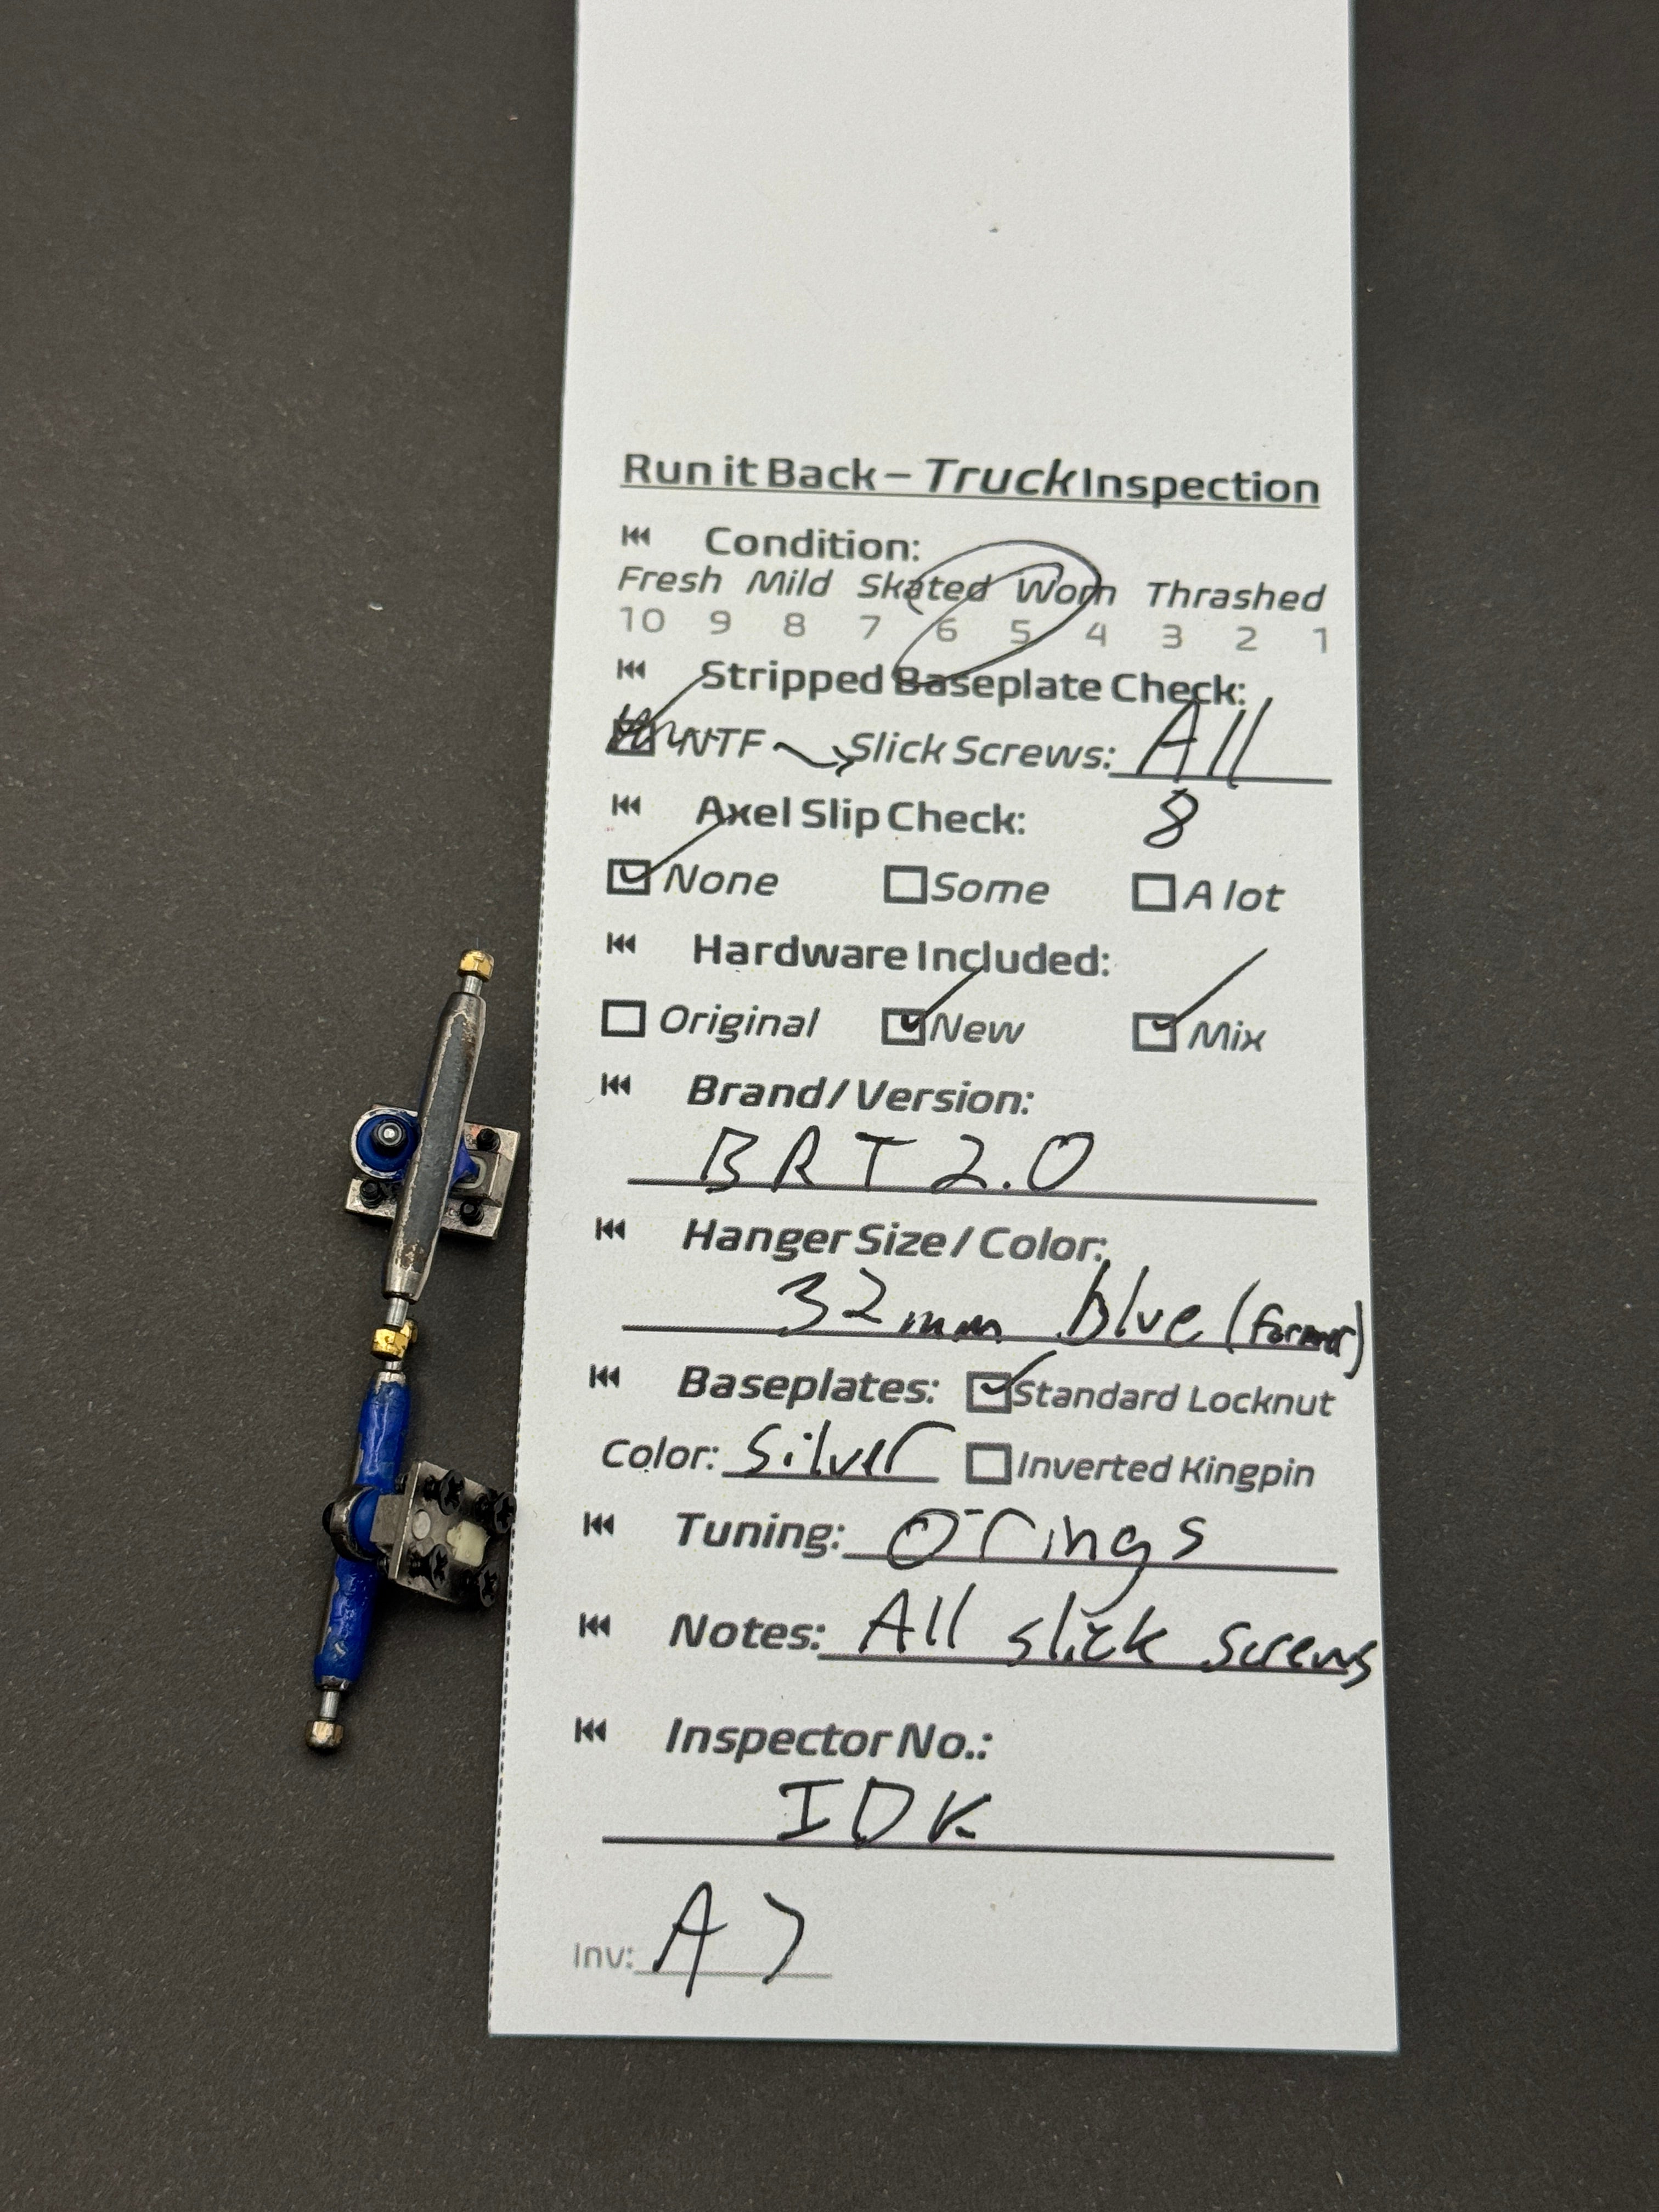 Run it Back – Truck Inspection
Condition:
Fresh Mild Skated Worn Thrashed
10 9 8 7 6 5 4 3 2 1
Stripped Baseplate Check:
NTF Slick Screws: All
8
Axel Slip Check:
None Some A lot
Hardware Included:
Original New Mix
Brand / Version:
BRT 2.0
Hanger Size / Color:
32mm blue (former)
Baseplates: Standard Locknut
Color: Silver Inverted Kingpin
Tuning: O-rings
Notes: All slick screws
Inspector No.:
IDK
Inv: A7